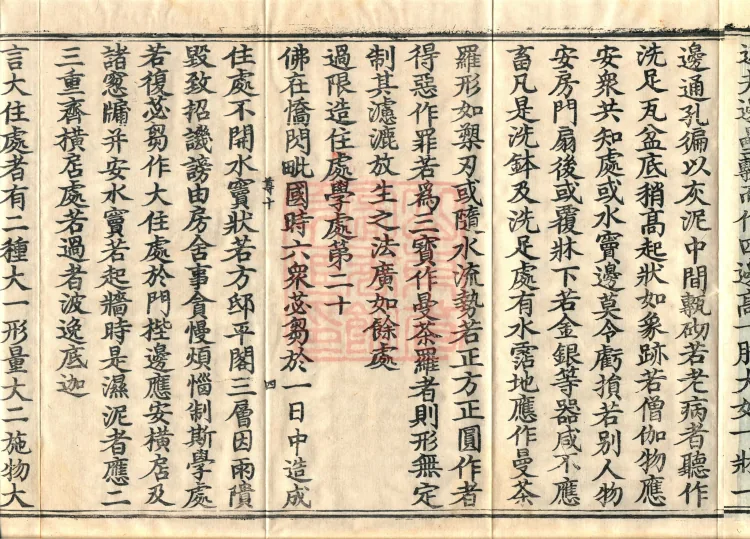 邊通孔徧以灰泥中間甎砌若老病者聽作
洗足瓦盆底稍高起狀如象跡若僧伽物應
安衆共知處或水竇邊莫令虧損若別人物
安房門扇後或覆牀下若金銀等器咸不應
畜凡是洗鉢及洗足處有水霑地應作曼荼
羅形如槊刃或隨水流勢若正方正圓作者
得惡作罪若爲三寶作曼荼羅者則形無定
制其濾漉放生之法廣如餘處
過限造住處學處第二十
佛在憍閃毗國時六衆苾芻於一日中造成
尊十
四
住處不開水竇狀若方邸平閣三層因雨隤
毀致招譏謗由房舍事貪慢煩惱制斯學處
若復苾芻作大住處於門梐邊應安橫居及
諸窓牖幷安水竇若起牆時是濕泥者應二
三重齊橫居處若過者波逸底迦
言大住處者有二種大一形量大二施物大